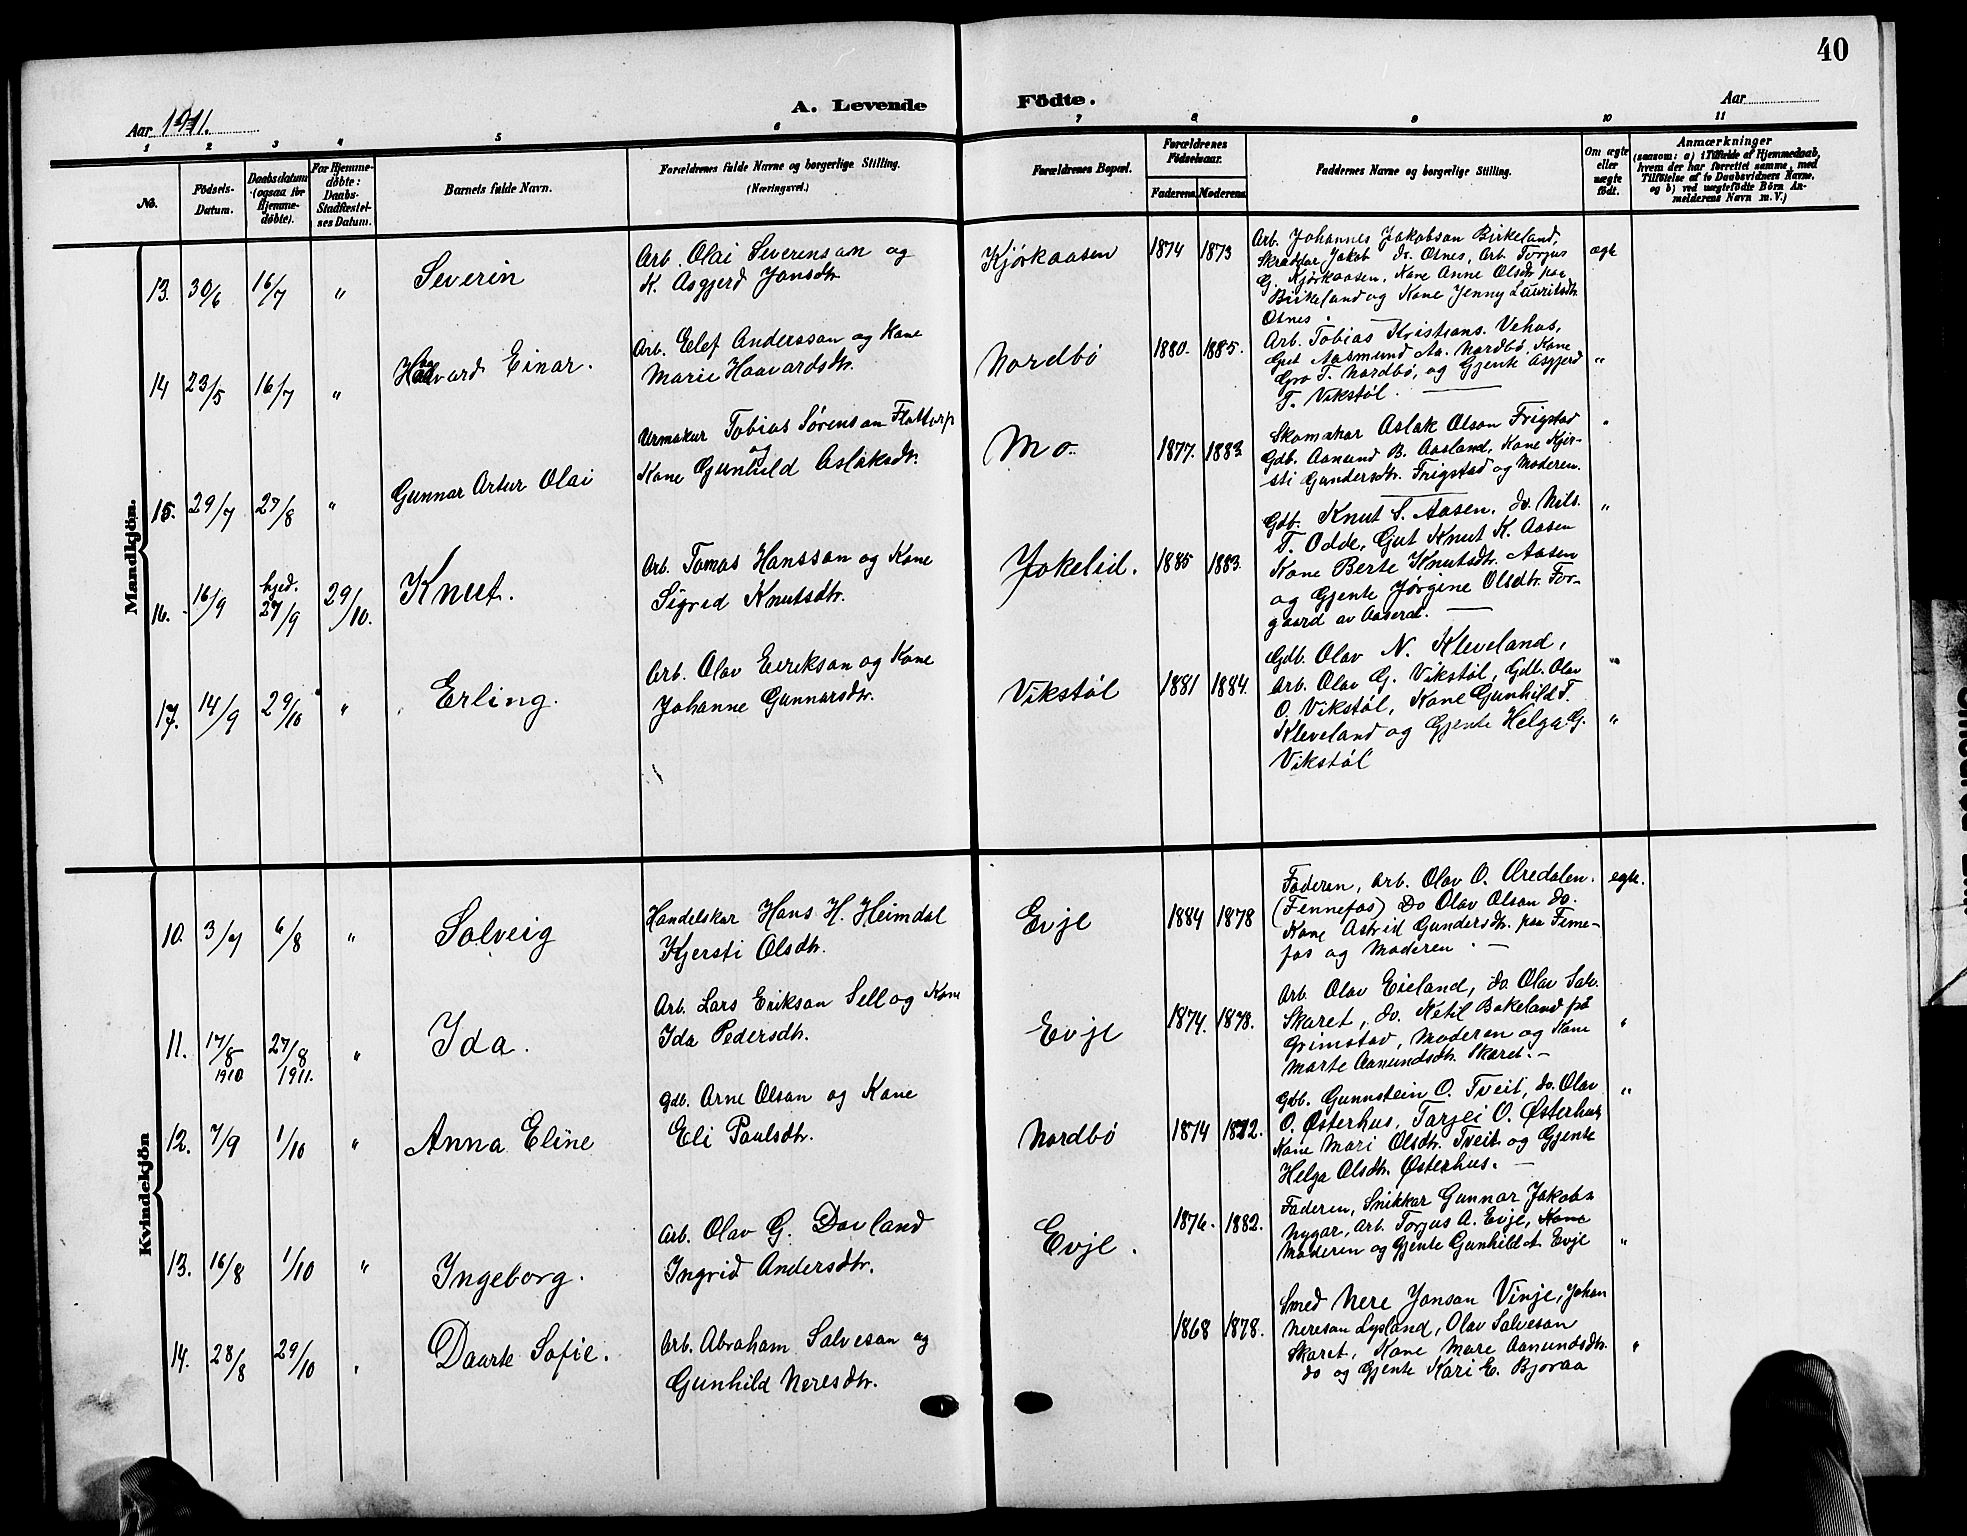 40
A. Levende Födte.
Aar 1911.
Aar
1 2 3 4 5 6 7 8 9 10 11
No.
Födsels-Datum.
Daabsdatum (ogsaa for Hjemme-döbte).
For Hjemme-döbte: Daabs-Stadfæstel-ses Datum.
Barnets fulde Navn.
Forældrenes fulde Navne og borgerlige Stilling.
(Næringsvei.)
Forældrenes Bopæl.
Forældrenes Födselsaar.
Faderens Moderens
Faddernes Navne og borgerlige Stilling.
Om ægte eller uægte födt.
Anmærkninger
(saasom: a) i Tilfælde af Hjemmedaab,
hvem der har forrettet samme, med
Tilföielse af to Daabsvidners Navne,
og b) ved uægtefödte Börn An-
melderens Navn m.V.)
Mandkjön.
13. 30/6 16/7 " Severin
Arb. Olai Severensan og
K. Asgjerd Jonsdtr.
Kjörkaasen 1874 1873
Arb. Johannes Jakobsan Birkeland,
Skrædder Jakob do. Osnes, Arb. Torjus
G. Kjørkaasen, Kone Anne Olsdtr paa
Birkeland og Kone Jenny Lauritsdtr.
Osnes.
ægte
14 23/5 16/7 " Haavard Einar.
Arb. Elef Anderssan og Kone
Marie Haavardsdtr.
Nordbö 1880. 1885.
Arb. Tobias Kristians. Vehus,
Gut Aasmund Aa. Nordbø, Kone
Gro T. Nordbø, og Gjente Asgjerd
T. Vikstøl.
"
15. 29/7 27/8 " Gunnar Artur Olai
Urmakur Tobias Sørensan Flottorp
og
Kone Gunhild Aslaksdtr.
Mo 1877. 1883.
Skomakar Aslak Olson Frigstad
Gdb. Aanund B. Aasland, Kone Kjir-
sti Gundersdtr. Frigstad og Moderen.
"
16. 16/9 hjed. 27/9 29/10. Knut.
Arb. Tomas Hanssan og Kone
Sigrid Knutsdtr.
Jokelid. 1885 1883.
Gdb. Knut S. Aasen, do. Nils
T. Odde, Gut Knut K. Aasen
Kone Berte Knutsdtr. Aasen
og Gjente Jørgine Olsdtr. For-
gaard av Aaseral.
"
17. 14/9 29/10 " Erling.
Arb. Olav Eeriksan og Kone
Johanne Gunnarsdtr.
Vikstøl 1881 1884.
Gdb. Olav N. Kleveland,
Arb. Olav G. Vikstøl, Gdb. Olav
O. Vikstøl, Kone Gunhild T.
Kleveland og Gjente Helga G.
Vikstøl
"
"
Kvindekjön
10. 3/7 6/8 " Solveig
Handelskar Hans H. Heimdal
Kjersti Olsdtr.
Evje 1884 1878
Faderen, Arb. Olav O. Uredalen.
(Fennefos) Do Olav Olsan do.
Kone Astrid Gundersdtr. paa Fenne-
fos og Moderen.
egte.
11. 17/8 1910 27/8 1911. " Ida.
Arb. Lars Erikson Sell og Kone
Ida Pedersdtr.
Evje 1874. 1878.
Arb. Olav Eieland, do. Olav Salv.
Skaret, do. Ketil Bakeland på
Grimstad, Moderen og Kone
Marte Aanundsdtr. Skaret.
"
12. 7/9 1/10 " Anna Eline
Gdb. Arne Olsan og Kone
Eli Paulsdtr.
Nordbø 1874 1872.
Gdb. Gunnstein O. Tveit, do. Olav
O. Østerhus, Tarjei O. Østerhus,
Kone Mari Olsdtr. Tveit og Gjente
Helga Olsdtr. Østerhus.
"
13. 16/8 1/10 " Ingeborg.
Arb. Olav G. Dovland
Ingrid Andersdtr.
Evje. 1876. 1882.
Faderen, Snikkar Gunnar Jakobs
Nygar, Arb. Torjus A. Evje, Kone
Moderen og Gjente Gunhild A. Evje
"
14. 28/8 29/10 " Daarte Sofie.
Arb. Abraham Salvesan og
Gunhild Neresdtr.
1868 1878.
Smed Nere Jonsan Vinje, Johan
Neresan Lysland, Olav Salvesan
Skaret, Kone Mare Aanundsdtr.
do og Gjente Kari E. Bjoraa
"